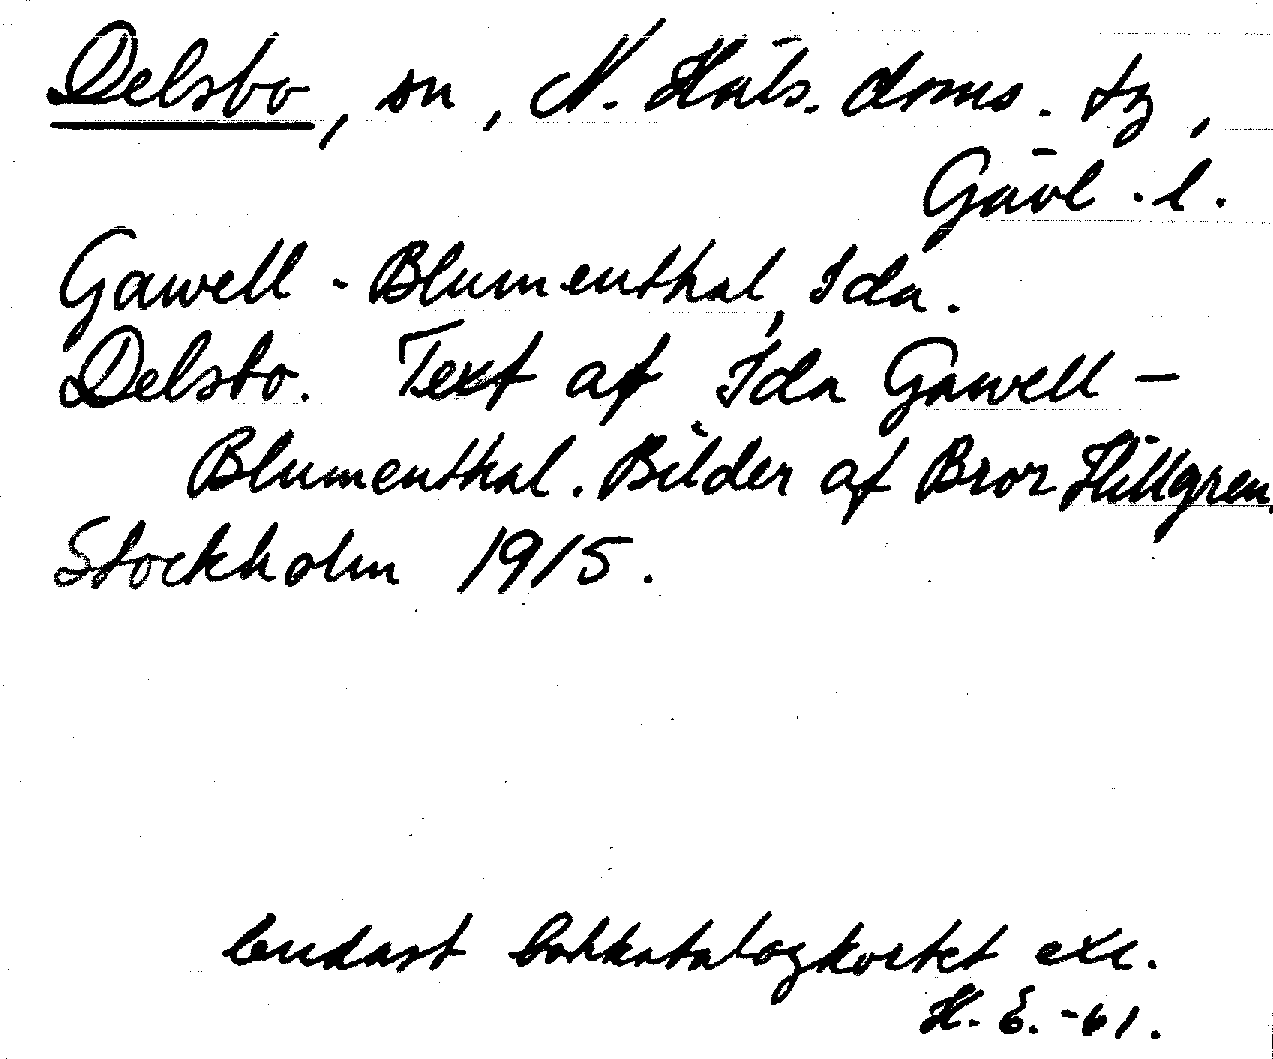 Delsbo, sn, N. Häls. doms. tg,
Gävl. l.
Gawell-Blumenthal, Ida.
Delsbo. Text af Ida Gawell-
Blumenthal. Bilder af Bror Hillgren.
Stockholm 1915.
Endast bokkatalogkortet exc.
H. E. -61.